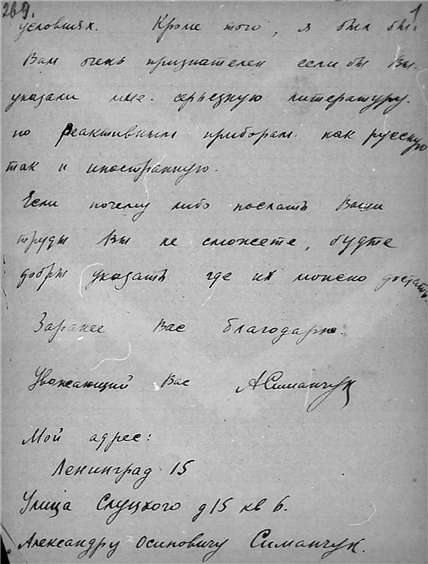 269.
1
условиях. Кроме того, я был бы
Вам очень признателен если бы Вы
указали мне серьезную литературу
по реактивным приборам как русскую
так и иностранную.
Если почему либо послать Ваши
труды Вы не сможете, будте
добры указать где их можно достать.
Заранее Вас благодарю.
Уважающий Вас АСиманчук
Мой адрес:
Ленинград 15
Улица Слуцкого д15 кв 6.
Александру Осиповичу Симанчук.